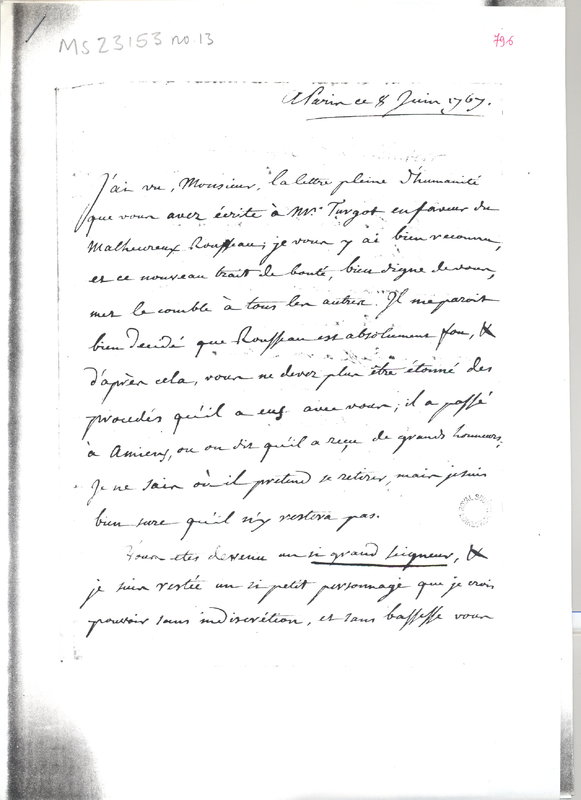 Ms 23153 no 13
796
A Paris ce 8 Juin 1767.
J'ai vu, Monsieur, la lettre pleine d'humanité
que vous avez écrite à Mr. Turgot en faveur du
Malheureux Rousseau; je vous y ai bien reconnu,
et ce nouveau trait de bonté, bien digne de vous,
met le comble à tous les autres. Il me paroit
bien decidé que Rousseau est absolument fou, &
d'après cela, vous ne devez plus être étonné des
procedés qu'il a eus avec vous; il a passé
à Amiens, ou on dit qu'il a reçu de grands honneurs;
Je ne sais où il pretend se retirer, mais je suis
bien sure qu'il n'y restera pas.
Vous etes devenu un si grand seigneur, &
je suis restée un si petit personnage que je crois
pouvoir sans indiscrétion, et sans bassesse vous